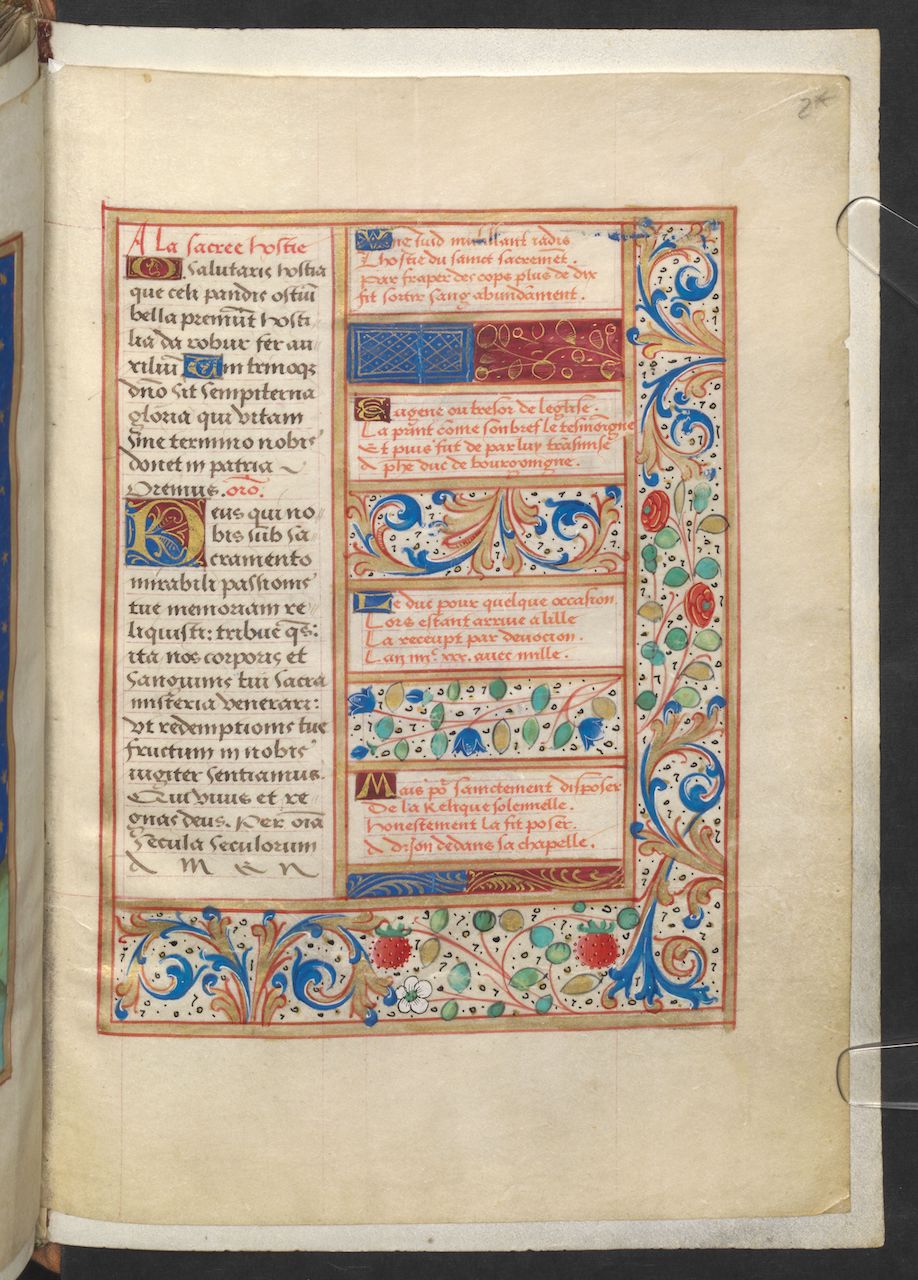 A La sacree hostie
O salutaris hostia
que celi pandis ostiū
bella premūt hosti
lia da robur fer au
xiliū Vni trinoqz
dn̄o sit sempiterna
gloria qui vitam
sine termino nobis
donet in patria
Oremus. orō.
Deus qui no
bis sub sa
cramento
mirabili passionis
tue memoriam re
liquisti: tribue qs̄:
ita nos corporis et
sanguinis tui sacra
misteria venerari:
vt redemptionis tue
fructum in nobis
iugiter sentiamus.
Qui viuis et re
gnas deus. Per oīa
secula seculorum
A M E N
Vng iuif mutillant radis
Lhostie du sainct sacremēt.
Par fraper des cops plus de dix
fit sortir sang abundament.
Eugene ou tresor de leglise.
La prīnt cōme son bref le tesmoigne
Et puis fut de par luy trāsmise
A phe duc de bourgoingne.
Le duc pour quelque occasion,
Lors estant arriue a lille
La receupt par deuocion.
Lan iiijᶜ. xxx. auec mille.
Mais pō sainctement disposer
De la Relique solennelle.
Honestement la fit poser.
A dijon dedans sa chapelle.